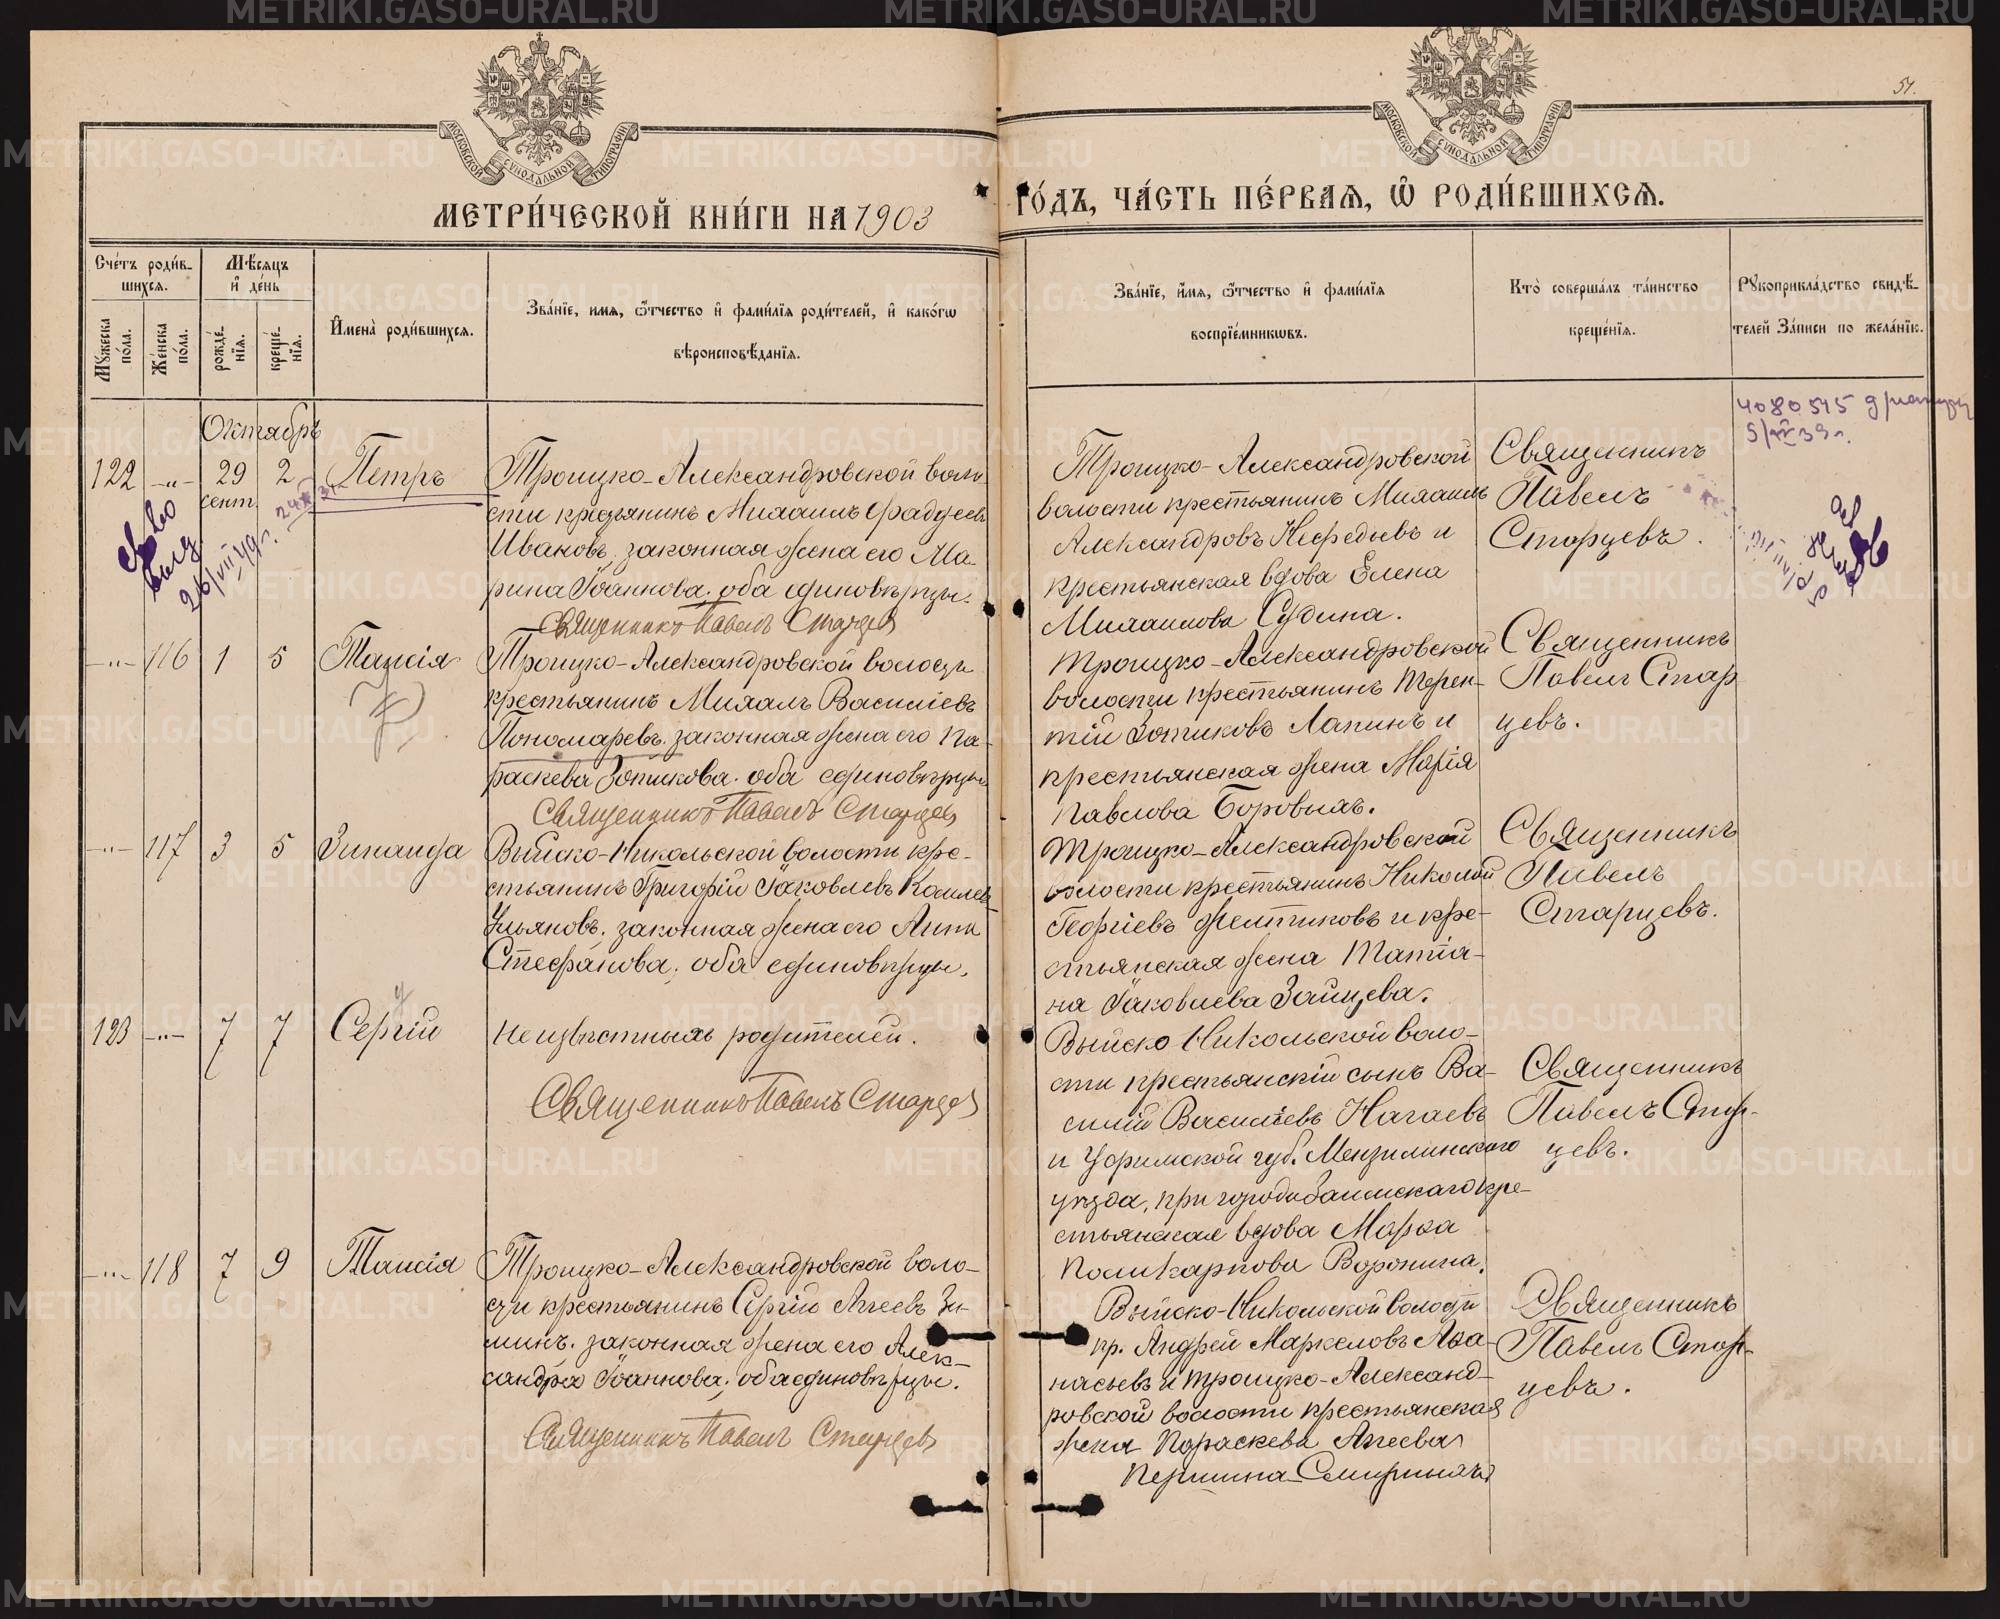 МЕТРИ́ЧЕСКОЙ КНИ́ГИ НА 1903
ГО́ДЪ, ЧА́СТЬ ПЕ́РВАѦ, Ѽ РОДИ́ВШИХСѦ.
Сче́тъ роди́в-
шихсѧ.
Мѣ́сѧцъ
и҆ де́нь
Мꙋ́жеска
по́ла.
Же́нска
по́ла.
рожде́-
нїѧ.
креще́-
нїѧ.
И҆мена̀ роди́вшихсѧ.
Зва́нїе, имѧ, ѻ҆́тчество и҆ фами́лїѧ роди́телей, и҆ како́гѡ
вѣроисповѣ́данїѧ.
Зва́нїе, и҆́мѧ, ѻ҆́тчество и҆ фами́лїѧ
воспрїе́мникѡвъ.
Кто̀ соверша́лъ та́инство
креще́нїѧ.
Рꙋкоприкла́дство свидѣ́-
телей За́писи по жела́нїю.
Октябрь
122 -"- 29 2 Петръ
сент.
Троицко-Александровской воло
сти крестьянинъ Михаилъ Фаддеевъ
Ивановъ, законная жена его Ма-
рина Іоаннова, оба единовѣрцы.
Священникъ Павелъ Старцев
Троицко-Александровской
волости крестьянинъ Михаилъ
Александровъ Нефедьевъ и
крестьянская вдова Елена
Михаилова Судина.
Священникъ
Павелъ
Старцевъ.
-"- 116 1 5 Таисія
Троицко-Александровской волости
крестьянинъ Михаилъ Василіевъ
Пономаревъ, законная жена его Па-
раскева Зотикова, оба единовѣрцы
Священникъ Павелъ Старцев
Троицко-Александровской
волости крестьянинъ Терен-
тій Зотиковъ Лапинъ и
крестьянская жена Марія
Павлова Боровыхъ.
Священникъ
Павелъ Стар
цевъ.
-"- 117 3 5 Зинаида
Выйско-Никольской волости кре-
стьянинъ Григорій Іаковлевъ
Ульяновъ, законная жена его Анна
Стефанова, оба единовѣрцы.
Троицко-Александровской
волости крестьянинъ Николай
Георгіевъ Желтиковъ и кре-
стьянская жена Татіа-
на Іаковлева Зайцева.
Священникъ
Павелъ
Старцевъ.
123 -"- 7 7 Сергій
Неизвѣстныхъ родителей.
Священникъ Павелъ Старцев
Выйско Никольской воло-
сти крестьянскій сынъ Ва-
силій Василіевъ Нагаевъ
и Уфимской губ. Мензелинскаго
уѣзда,
стьянская вдова Марѳа
Поликарпова Воронина.
Священникъ
Павелъ Стар-
цевъ.
-"- 118 7 9 Таисія
Троицко-Александровской воло-
сти крестьянинъ Сергій Аггеевъ Зи-
минъ, законная жена его Алек-
сандра Іоаннова, оба единовѣрцы.
Священникъ Павелъ Старцев
Выйско-Никольской волости
кр. Андрей Маркеловъ Аѳа-
насьевъ и Троицко-Александ-
ровской волости крестьянская
жена Параскева Аггеева
Священникъ
Павелъ Стар-
цевъ.